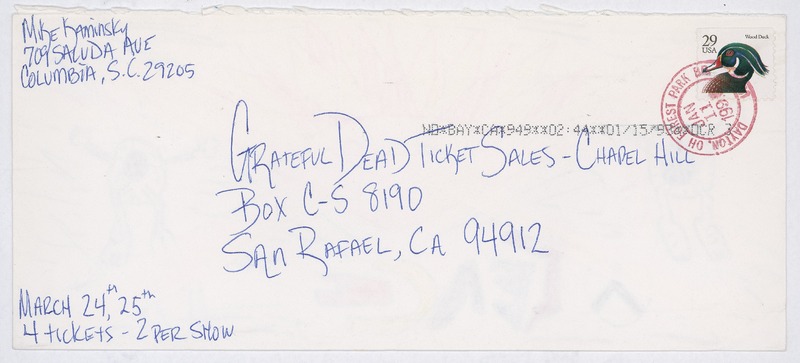 Mike Kaminsky
709 SALUDA AVE
COLUMBIA, S.C. 29205
29
USA
Wood Duck
DAYTON, OH FOREST PARK
JAN
11
199
NO*BAY*CA*949**02:44**01/15/93
OCR
GRATEFUL DEAD TICKET SALES - CHAPEL HILL
BOX C-S 8190
SAN RAFAEL, CA 94912
MARCH 24th, 25th
4 TICKETS - 2 PER SHOW